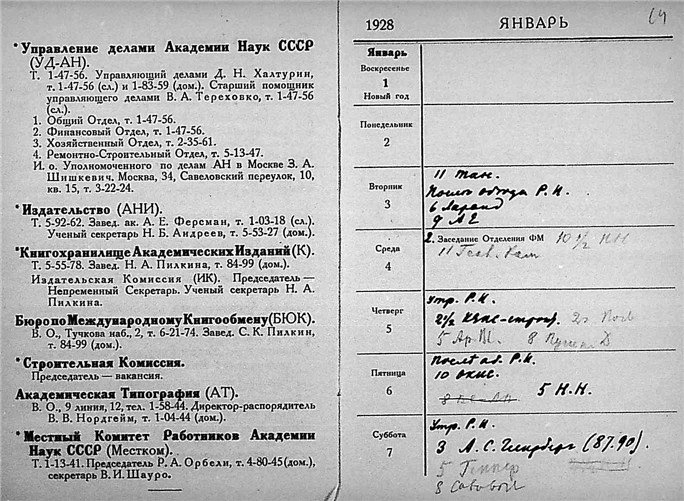 *Управление делами Академии Наук СССР
(УД-АН).
Т. 1-47-56. Управляющий делами Д. Н. Халтурин,
т. 1-47-56 (сл.) и 1-83-59 (дом.). Старший помощник
управляющего делами В. А. Тереховко, т. 1-47-56
(сл.).
1. Общий Отдел, т. 1-47-56.
2. Финансовый Отдел, т. 1-47-56.
3. Хозяйственный Отдел, т. 2-35-61.
4. Ремонтно-Строительный Отдел, т. 5-13-47.
И. о. Уполномоченного по делам АН в Москве З. А.
Шишкевич. Москва, 34, Савеловский переулок, 10,
кв. 15, т. 3-22-24.
*Издательство (АНИ).
Т. 5-92-62. Завед. ак. А. Е. Ферсман, т. 1-03-18 (сл.).
Ученый секретарь Н. Б. Андреев, т. 5-53-27 (дом.).
*Книгохранилище Академических Изданий (К).
Т. 5-55-78. Завед. Н. А. Пилкина, т. 84-99 (дом.).
Издательская Комиссия (ИК). Председатель—
Непременный Секретарь. Ученый секретарь Н. А.
Пилкина.
Бюро по Международному Книгообмену (БЮК).
В. О., Тучкова наб., 2, т. 6-21-74. Завед. С. К. Пилкин,
т. 84-99 (дом.).
*Строительная Комиссия.
Председатель — вакансия.
Академическая Типография (АТ).
В. О., 9 линия, 12, тел. 1-58-44. Директор-распорядитель
В. В. Нордгейм, т. 1-04-44 (дом.).
*Местный Комитет Работников Академии
Наук СССР (Местком).
Т. 1-13-41. Председатель Р. А. Орбели, т. 4-80-45 (дом.),
секретарь В. И. Шауро.
1928 ЯНВАРЬ
Январь
Воскресенье
1
Новый год
Понедельник
2
Вторник
3
11
Р. И.
6
9
Среда
4
2. Заседание Отделения ФМ 10 1/2
11
Четверг
5
Утр. Р. И.
2 1/2
5 8
Пятница
6
Р. И.
10
5 Н.Н.
Суббота
7
Утр. Р. И.
3 А. С. Гинзберг (87.90).
5
8